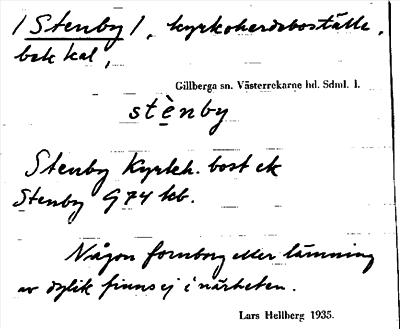 /Stenby/, kyrkoherdeboställe,
bek kal,
Gillberga sn. Västerrekarne hd. Sdml. l.
stènby
Stenby Kyrkh. bost ek
Stenby G 74 kb.
Någon fornborg eller lämning
av dylik finns ej i närheten.
Lars Hellberg 1935.